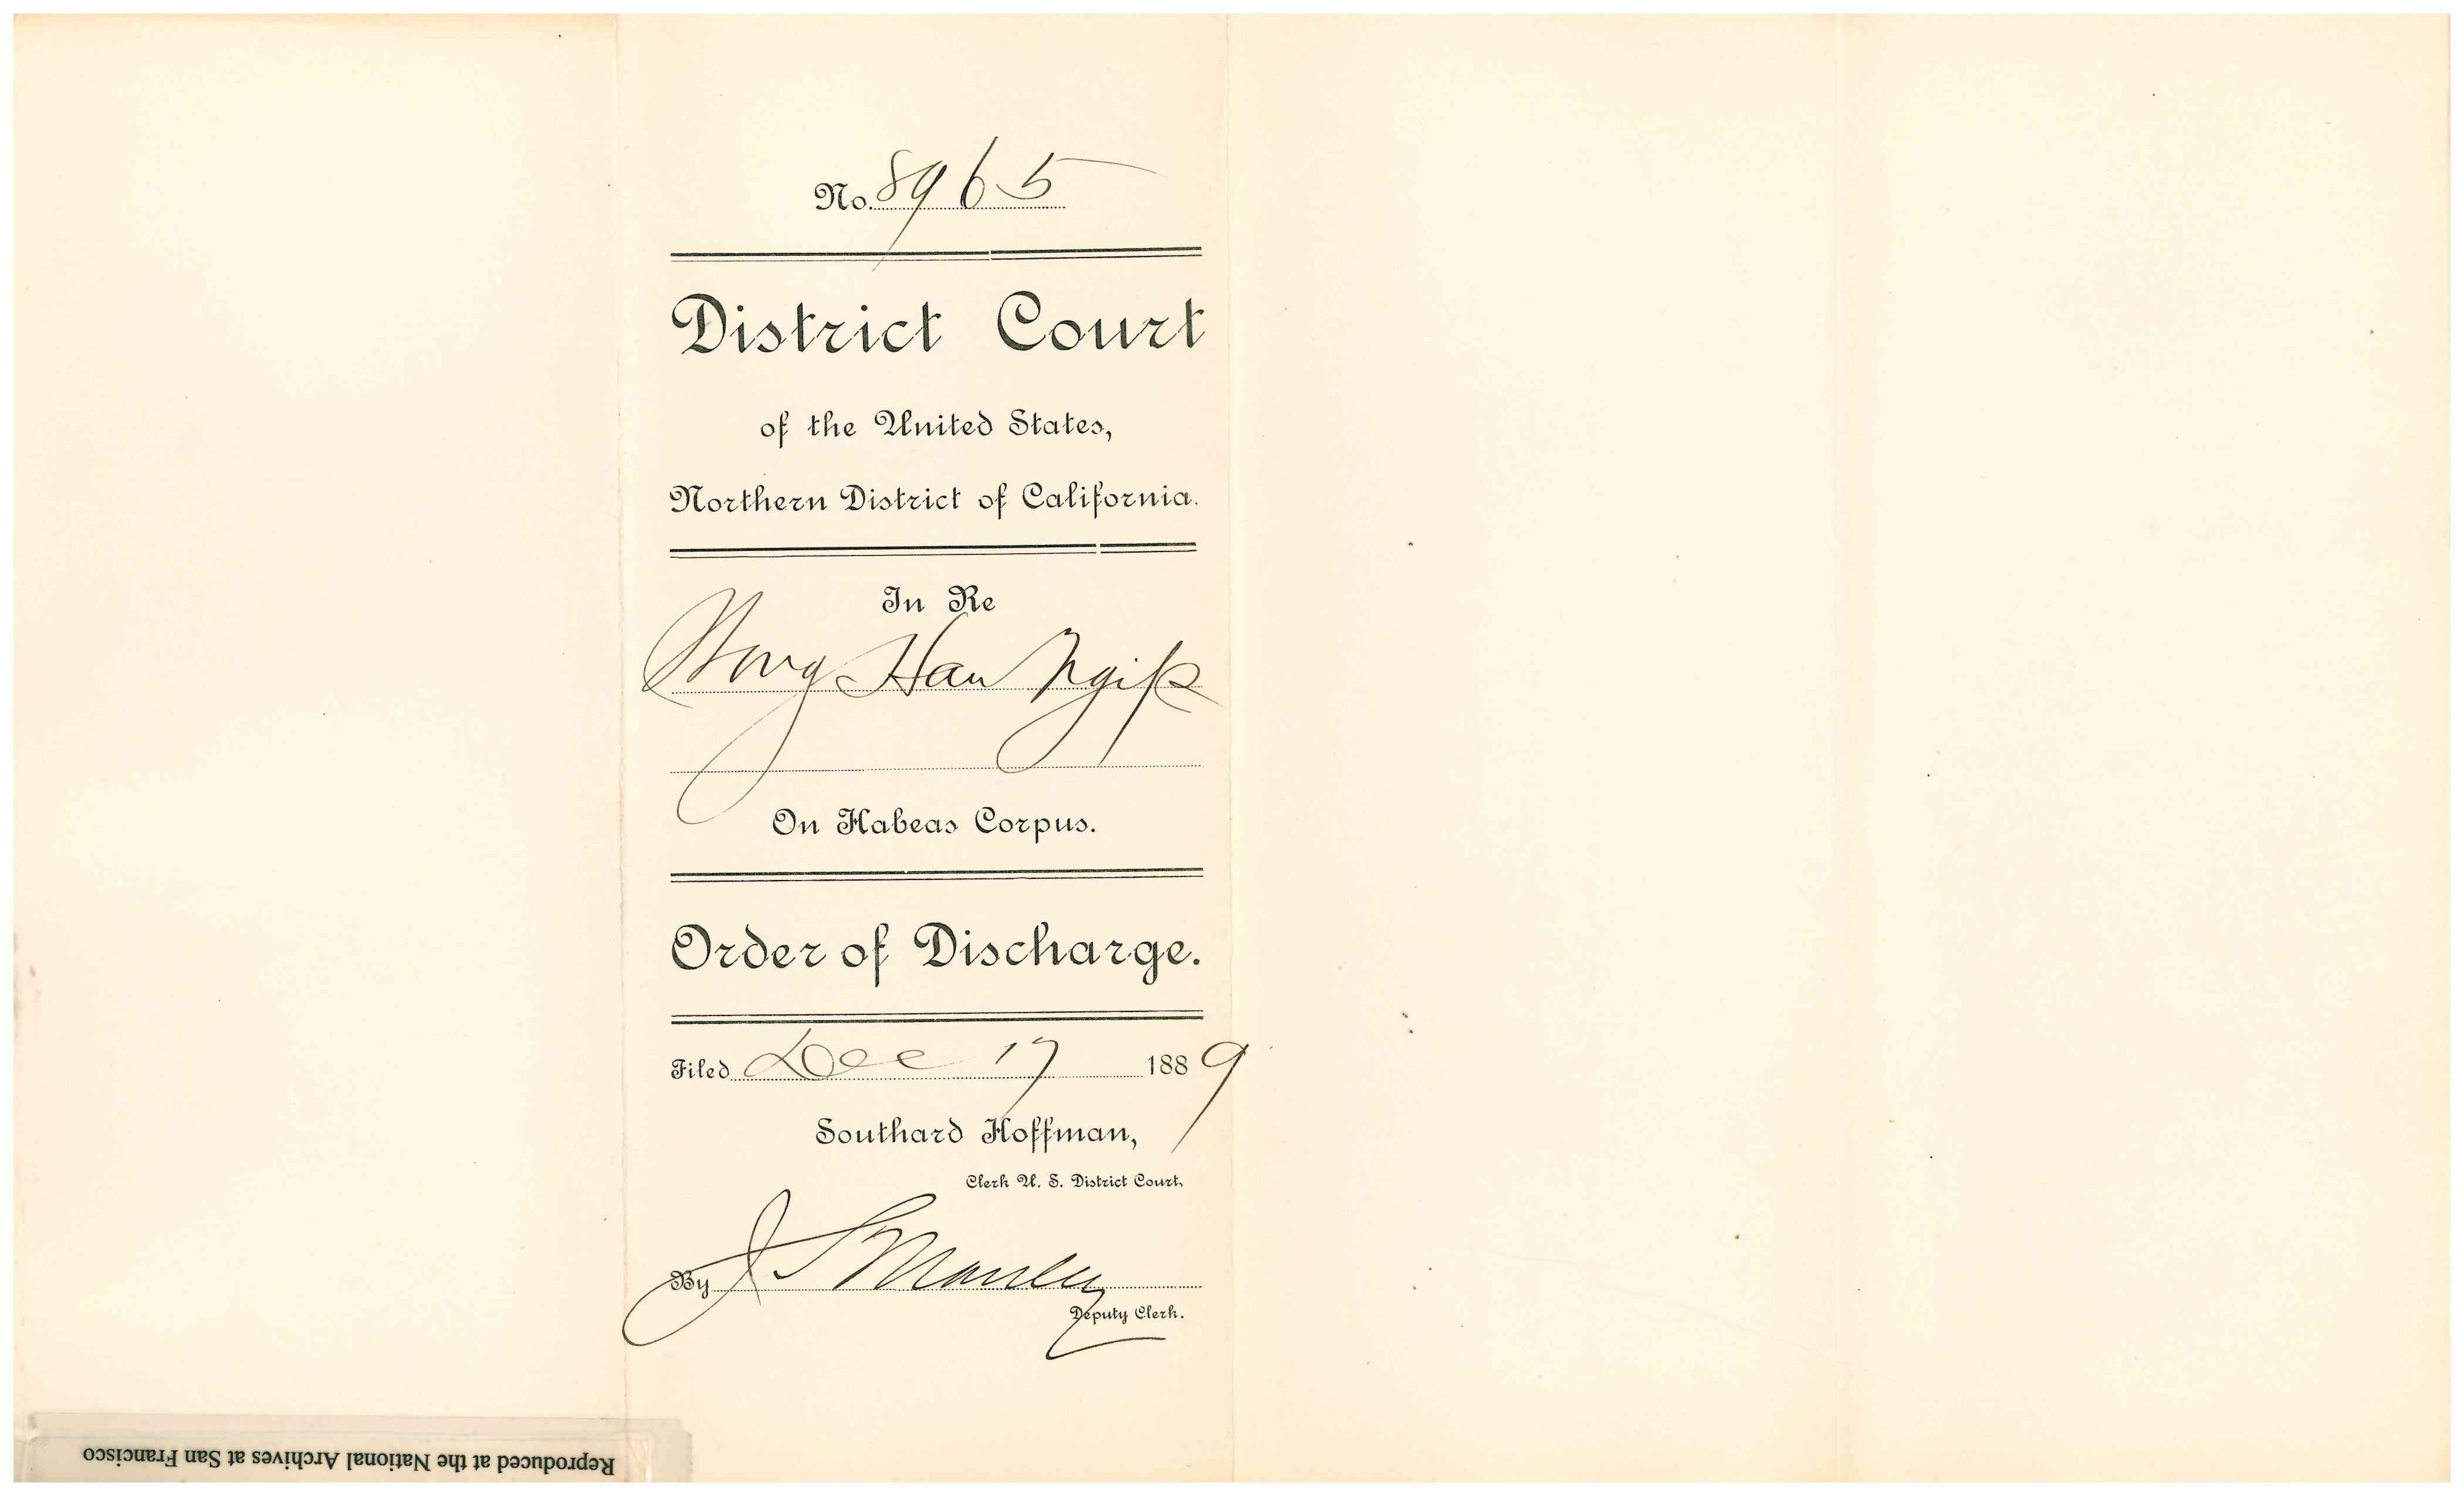 No. 8965
District Court
of the United States,
Northern District of California.
In Re
Wong Han
On Habeas Corpus.
Order of Discharge.
Filed Dec 17 1889
Southard Hoffman,
Clerk U. S. District Court,
By J S Manley
Deputy Clerk.
Reproduced at the National Archives at San Francisco